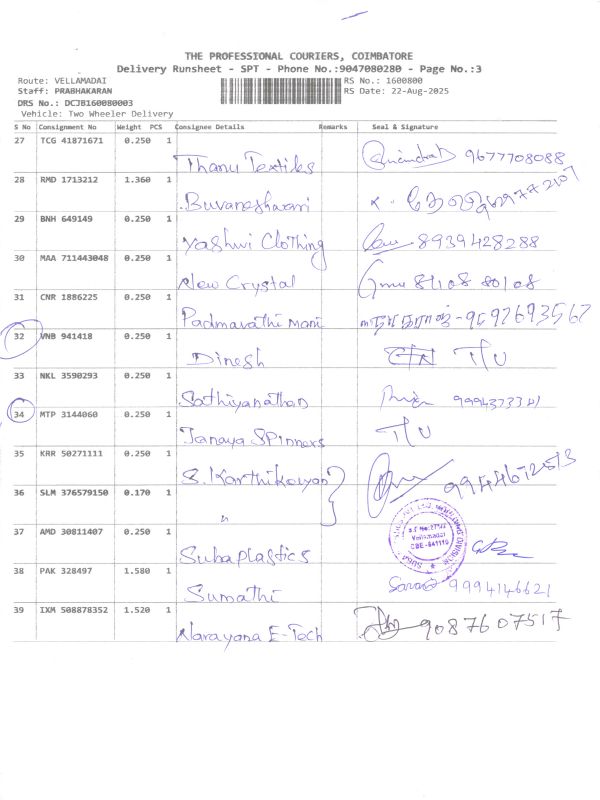 THE PROFESSIONAL COURIERS, COIMBATORE
Delivery Runsheet - SPT - Phone No.:9047080280 - Page No.:3
Route: VELLAMADAI RS No.: 1600800
Staff: PRABHAKARAN RS Date: 22-Aug-2025
DRS No.: DCJB160080003
Vehicle: Two Wheeler Delivery
S No Consignment No Weight PCS Consignee Details Remarks Seal & Signature
27 TCG 41871671 0.250 1
Thanu Textiles 9677708088
28 RMD 1713212 1.360 1
Buvaneshwari
29 BNH 649149 0.250 1
Yashwi Clothing 8939428288
30 MAA 711443048 0.250 1
New Crystal 84108 80108
31 CNR 1886225 0.250 1
Padmavathi Mani
32 VNB 941418 0.250 1
Dinesh T/U
33 NKL 3590293 0.250 1
Sathiyanathan
34 MTP 3144060 0.250 1
Tanaya Spinners T/U
35 KRR 50271111 0.250 1
S. Karthikeyan
36 SLM 376579150 0.170 1
"
37 AMD 30811407 0.250 1
Vellamadai
Subaplastics
38 PAK 328497 1.580 1
Sumathi 9994146621
39 IXM 508878352 1.520 1
Narayana E-Tech 9087607517